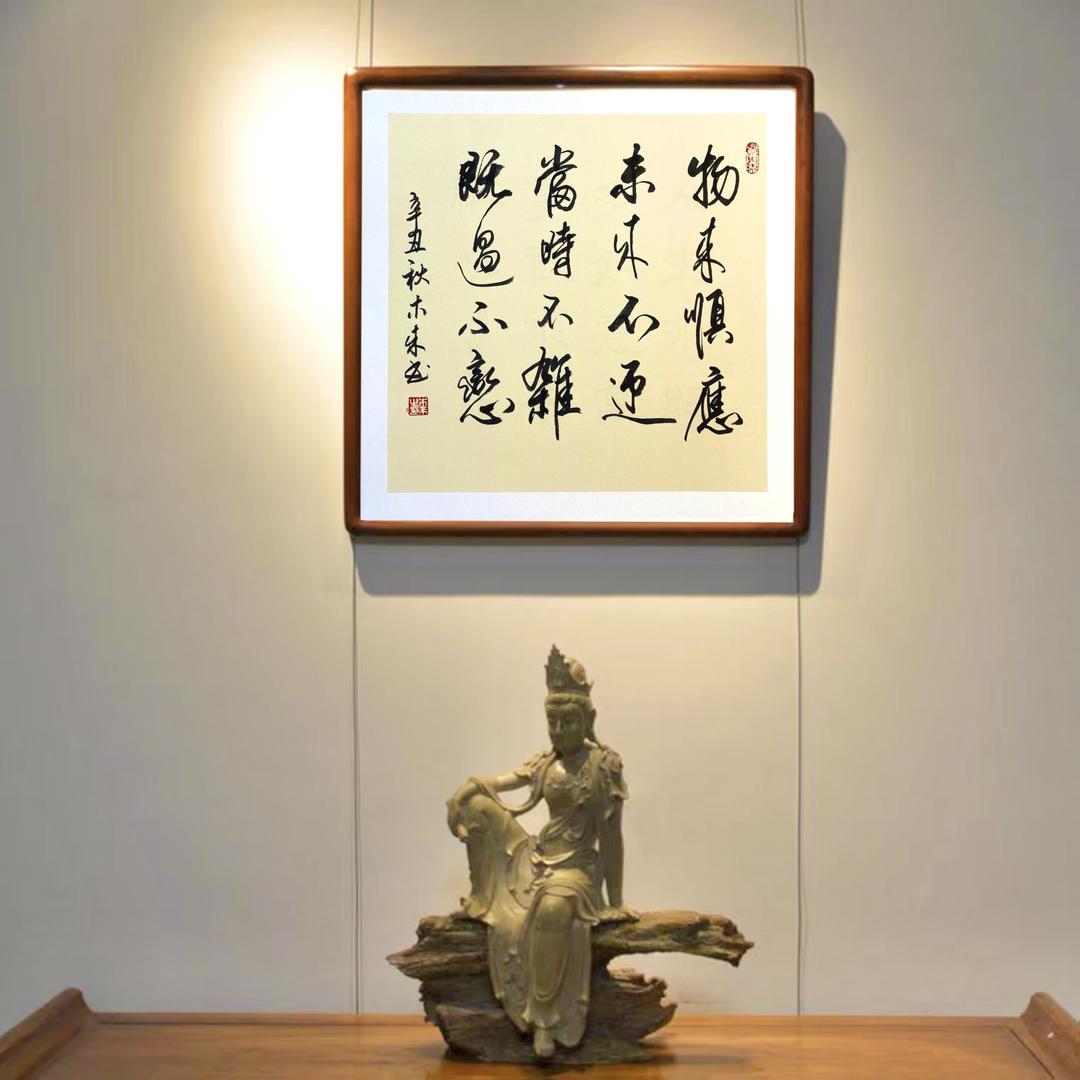 物来順應
未来不迎
當時不雜
既過不戀
辛丑秋木来书